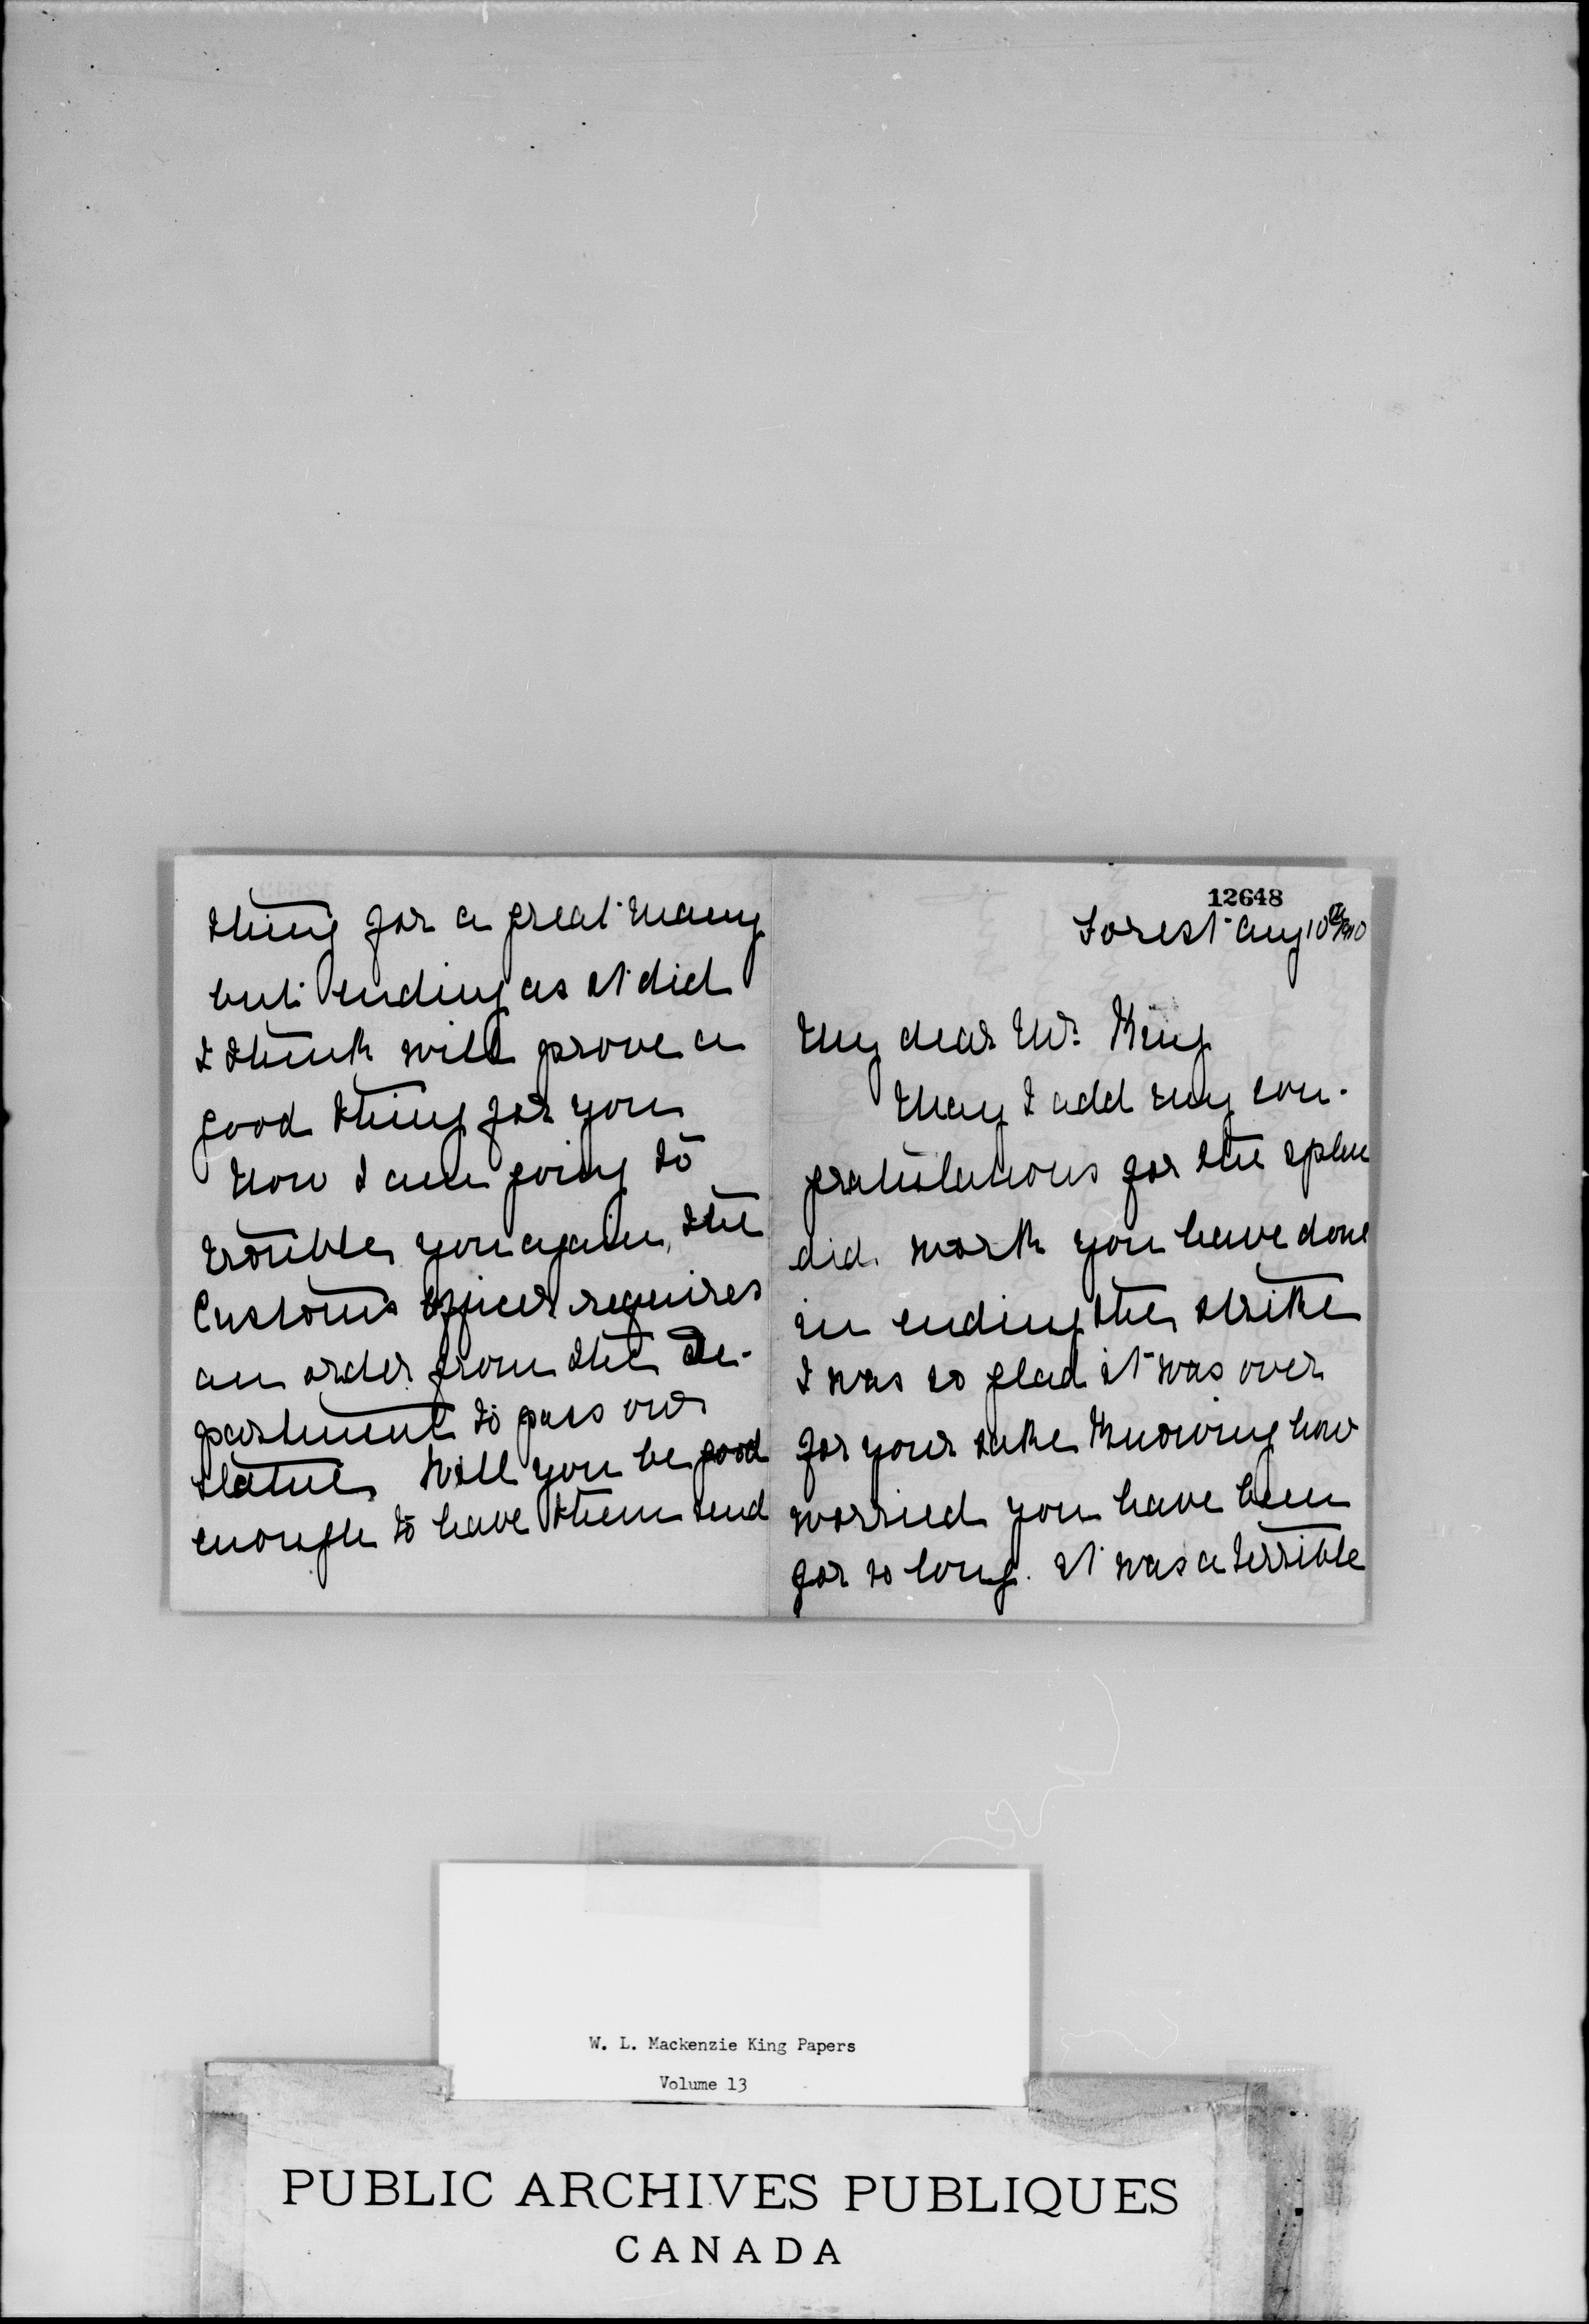 12648
Forest Aug 10th/1910
My dear Mr. King
May I add my con-
gratulations for the splen
did work you have done
in ending the strike
I was so glad it was over
for your sake knowing how
worried you have been
for so long. It was a terrible
thing for a great many
but ending as it did
I think will prove a
good thing for you
Now I am going to
trouble you again, the
Customs Officer requires
an order from the de-
partment to pass our
statue, Will you be good
enough to have them send
W. L. Mackenzie King Papers
Volume 13
PUBLIC ARCHIVES PUBLIQUES
CANADA